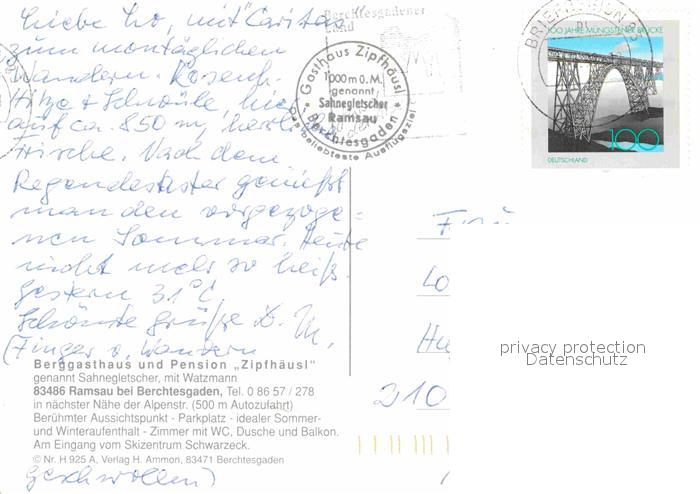 Liebe Lio, mit Caritas
zum montäglichen
Wandern. Rosenh.
Hitze + Schwüle, hier
auf ca. 850 m, herrl.
Frische. Nach dem
Regendesaster genießt
man den vorgezoge-
nen Sommer. Heute
nicht mehr so heiß.
Gestern 31°C
Schönste Grüße D. M.
(Finger v. Wandern
geschwollen)
Berchtesgadener
Land
Gasthaus Zipfhäusl
1000 m ü. M.
genannt
Sahnegletscher
Ramsau
Berchtesgaden
Das beliebteste Ausflugsziel
BRIEFZENTRUM
100 JAHRE MÜNGSTENER BRÜCKE
100
DEUTSCHLAND
Frau
Lo
Hu
210
privacy protection
Datenschutz
Berggasthaus und Pension „Zipfhäusl"
genannt Sahnegletscher, mit Watzmann
83486 Ramsau bei Berchtesgaden, Tel. 0 86 57 / 278
in nächster Nähe der Alpenstr. (500 m Autozufahrt)
Berühmter Aussichtspunkt - Parkplatz - idealer Sommer-
und Winteraufenthalt - Zimmer mit WC, Dusche und Balkon.
Am Eingang vom Skizentrum Schwarzeck.
© Nr. H 925 A, Verlag H. Ammon, 83471 Berchtesgaden